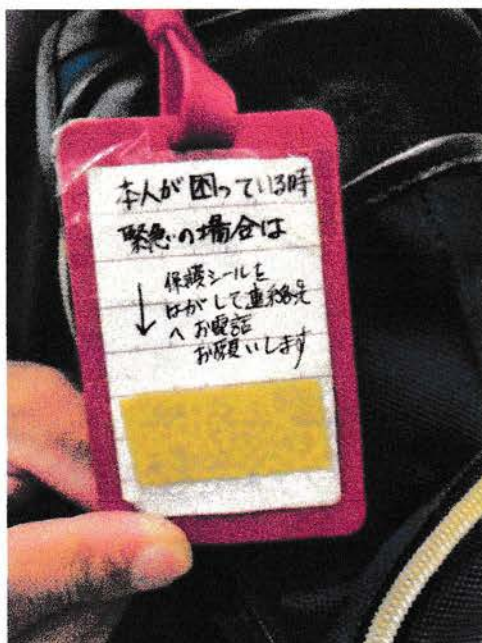 本人が困っている時
緊急の場合は
↓
保護シールを
はがして連絡先
へお電話
お願いします